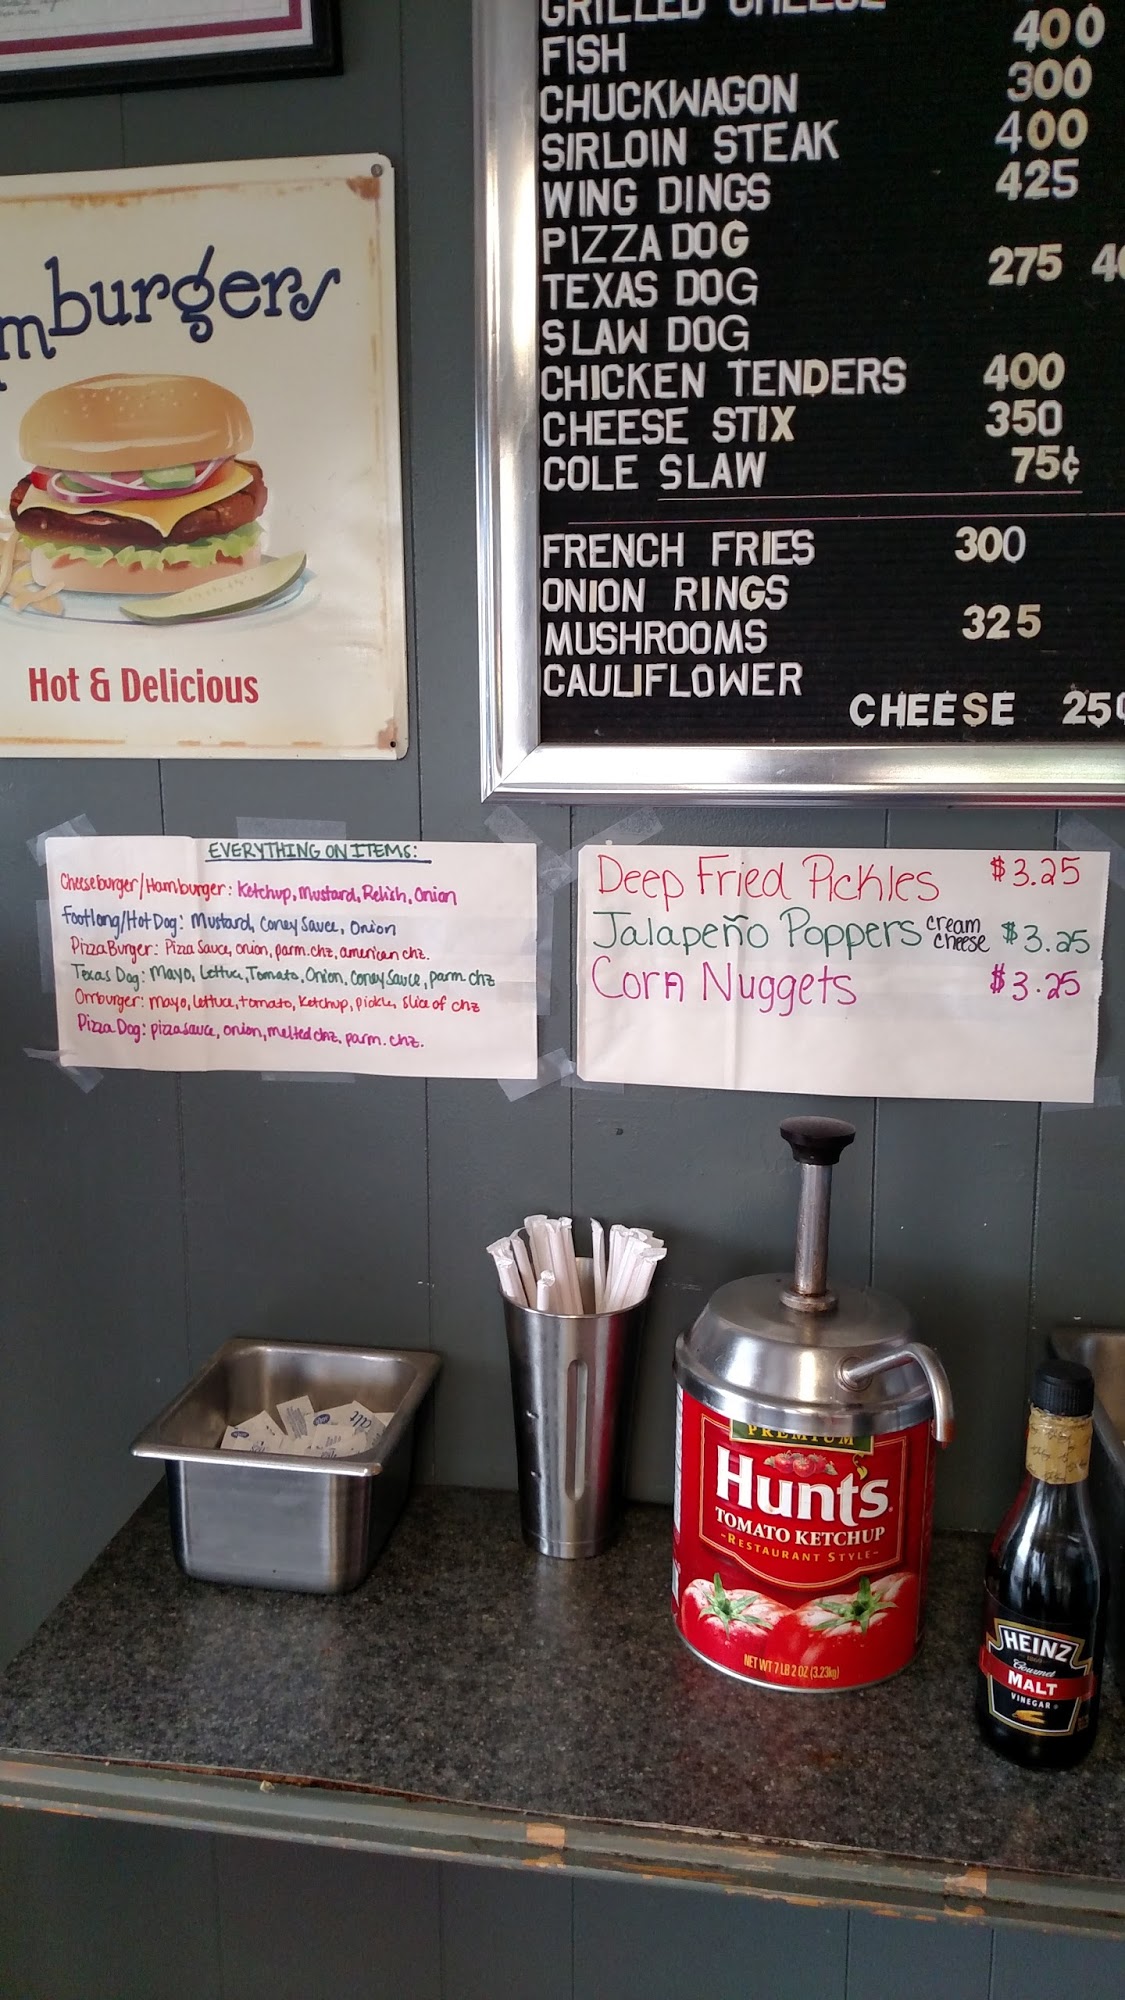 GRILLED CHEESE
FISH 400
CHUCKWAGON 300
SIRLOIN STEAK 400
WING DINGS 425
PIZZA DOG
TEXAS DOG 275
SLAW DOG
CHICKEN TENDERS 400
CHEESE STIX 350
COLE SLAW 75¢
FRENCH FRIES 300
ONION RINGS
MUSHROOMS 325
CAULIFLOWER
CHEESE 25¢
mburgers
Hot & Delicious
EVERYTHING ON ITEMS:
Cheeseburger/Hamburger: Ketchup, Mustard, Relish, Onion
Footlong/Hot Dog: Mustard, Coney Sauce, Onion
Pizza Burger: Pizza Sauce, onion, parm. chz, american chz.
Texas Dog: Mayo, Lettuce, Tomato, Onion, Coney Sauce, parm chz
Orrburger: mayo, lettuce, tomato, Ketchup, pickle, slice of chz
Pizza Dog: pizza sauce, onion, melted chz. parm. chz.
Deep Fried Pickles $3.25
Jalapeño Poppers cream cheese $3.25
Corn Nuggets $3.25
PREMIUM
Hunt's
TOMATO KETCHUP
-RESTAURANT STYLE-
NET WT 7 LB 2 OZ (3.23kg)
HEINZ
Gourmet
MALT
VINEGAR